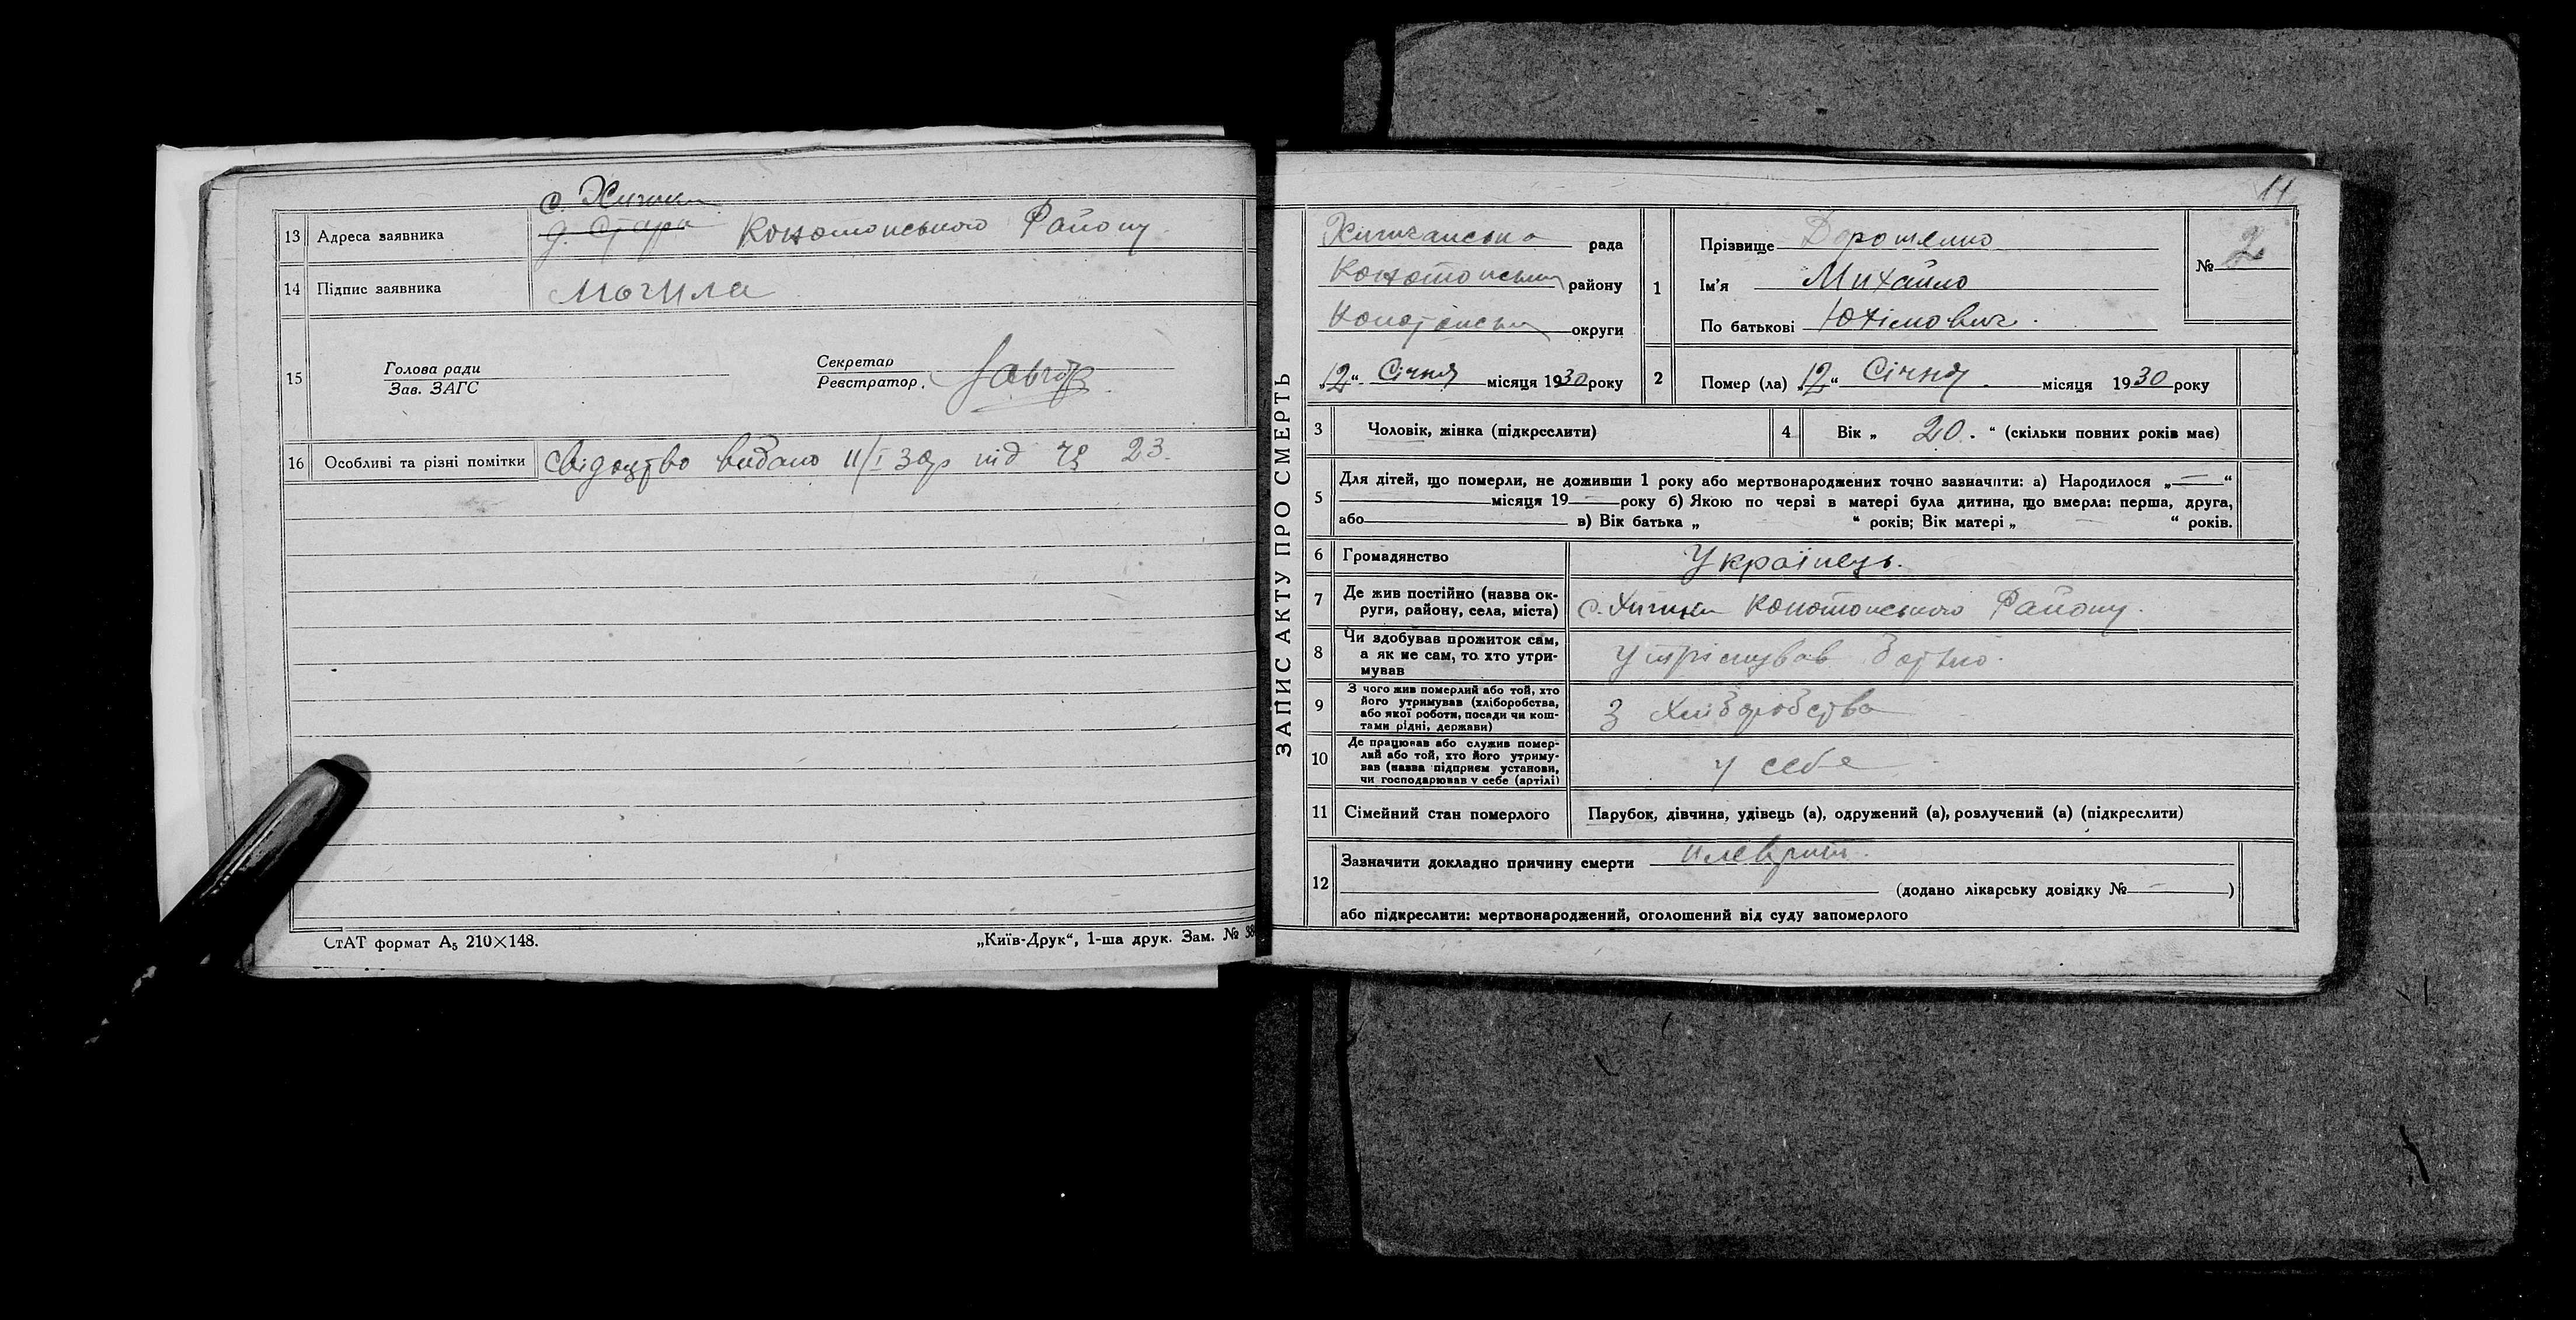 с. Хижки
13 Адреса заявника д. Стара Конотопського Району
14 Підпис заявника Могила
15 Голова ради
Зав. ЗАГС
Секретар
Реєстратор
16 Особливі та різні помітки Свідоцтво видано 11/I 30р під № 23.
СтАТ формат А5 210×148.
„Київ-Друк“, 1-ша друк. Зам. № 38
ЗАПИС АКТУ ПРО СМЕРТЬ
11
рада
Конотопський району
округи
„12“ Січня місяця 1930 року
1 Прізвище Дорошенко
Ім'я Михайло
По батькові Юхімович.
№ 2
2 Помер (ла) „12“ Січня місяця 1930 року
3 Чоловік, жінка (підкреслити)
4 Вік „ 20. “ (скільки повних років має)
5 Для дітей, що померли, не доживши 1 року або мертвонароджених точно зазначити: а) Народилося „—“
місяця 19—року б) Якою по черзі в матері була дитина, що вмерла: перша, друга,
або в) Вік батька „ “ років; Вік матері „ — “ років.
6 Громадянство Українець.
7 Де жив постійно (назва ок-
руги, району, села, міста) с. Хижки Конотопського Району.
8 Чи здобував прожиток сам,
а як не сам, то хто утри-
мував Утрімував батько.
9 З чого жив померлий або той, хто
його утримував (хліборобства,
або якої роботи, посади чи кош-
тами рідні, держави) З Хліборобства
10 Де працював або служив помер-
лий або той, хто його утриму-
вав (назва підприєм установи,
чи господарював у себе (артілі) у себе
11 Сімейний стан померлого Парубок, дівчина, удівець (а), одружений (а), розлучений (а) (підкреслити)
12 Зазначити докладно причину смерти плевріт.
(додано лікарську довідку № — )
або підкреслити: мертвонароджений, оголошений від суду запомерлого